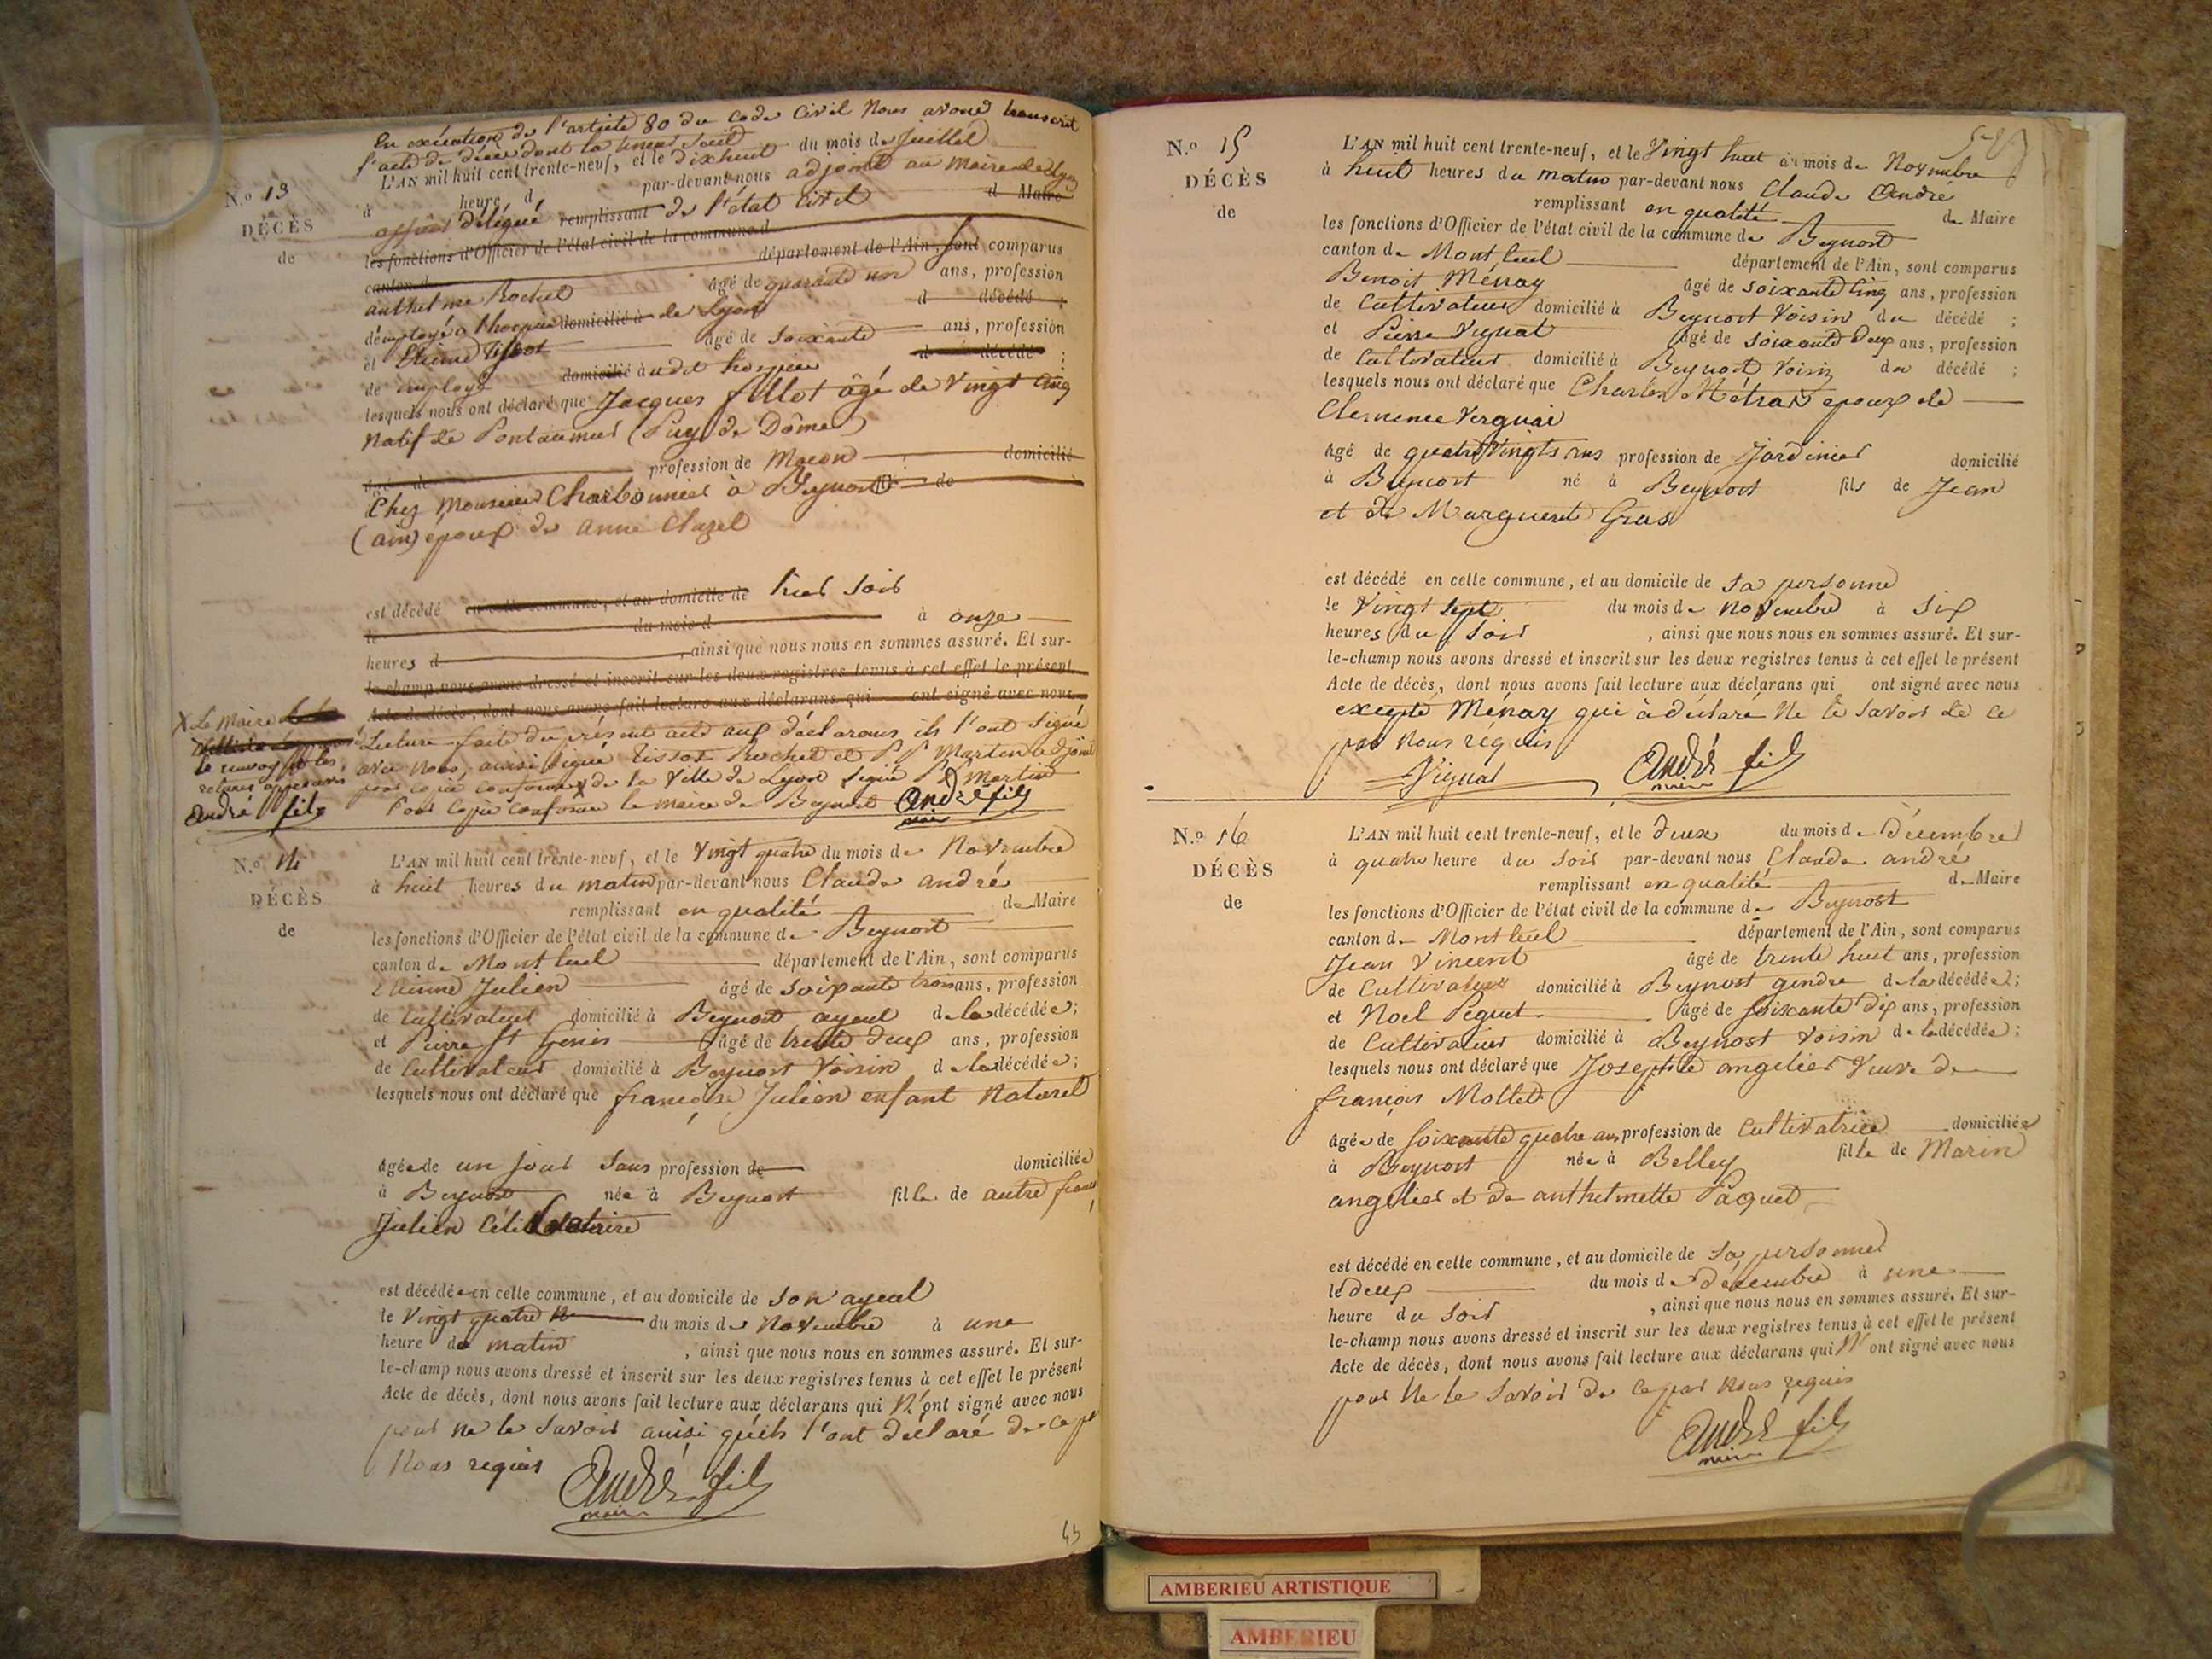 En exécution de l'article 80 du Code Civil Nous avons transcrit
l'acte de décès dont la teneur suit
N.o 13
L'AN mil huit cent trente-neuf, et le dixhuit du mois de Juillet
à heure d par-devant nous adjoint au Maire de Lyon
DÉCÈS
de
délégué remplissant de l'état civil d Maire
les fonctions d'Officier de l'état civil de la commune d
canton d département de l'Ain, sont comparus
anthelme Rochet âgé de quarante un ans, profession
d'employé à l'hospice domicilié à de Lyon d décédé ;
et Etienne Tissot âgé de soixante ans, profession
de employé domicilié à udit hospice d décédé ;
lesquels nous ont déclaré que Jacques fillot âgé de Vingt Cinq
Natif de Pontaumur (Puy de Dôme)
âgé de profession de Maçon domicilié
Chez Monsieur Charbonnier à Beynost de
(ain) époux de anne Chazel
est décédé en cette commune, et au domicile de hier soir
le du mois d à onze
heures d , ainsi que nous nous en sommes assuré. Et sur-
le-champ nous avons dressé et inscrit sur les deux registres tenus à cet effet le présent
Acte de décès, dont nous avons fait lecture aux déclarans qui ont signé avec nous
X Le Maire
Lecture faite du présent acte aux déclarans ils l'ont signé
avec Nous, ainsi signé Tissot Rochet et P Martin adjoint
pour copie conforme X de la Ville de Lyon signé P Martin
Pour Copie conforme le maire de Beynost André fils
maire
André fils
N.o 14
L'AN mil huit cent trente-neuf, et le Vingt quatre du mois de Novembre
à huit heures du matin par-devant nous Claude andré
DÉCÈS
remplissant en qualité de Maire
de
les fonctions d'Officier de l'état civil de la commune de Beynost
canton de Montluel département de l'Ain, sont comparus
Etienne Julien âgé de soixante trois ans, profession
de Cultivateur domicilié à Beynost ayeul de la décédée ;
et Pierre St Genis âgé de trente deux ans, profession
de Cultivateur domicilié à Beynost Voisin de la décédée ;
lesquels nous ont déclaré que françoise Julien enfant Naturel
âgée de un jour Sans profession de domiciliée
à Beynost née à Beynost fille de autre
Julien Célibataire
est décédée en cette commune, et au domicile de son ayeul
le Vingt quatre du mois de Novembre à une
heure du matin , ainsi que nous nous en sommes assuré. Et sur-
le-champ nous avons dressé et inscrit sur les deux registres tenus à cet effet le présent
Acte de décès, dont nous avons fait lecture aux déclarans qui N'ont signé avec nous
pour ne le Savoir ainsi qu'ils l'ont déclaré de ce par
Nous requis
André fils
maire
43
N.o 15
L'AN mil huit cent trente-neuf, et le Vingt huit du mois de Novembre
à huit heures du matin par-devant nous Claude André
DÉCÈS
remplissant en qualité de Maire
de
les fonctions d'Officier de l'état civil de la commune de Beynost
canton de Montluel département de l'Ain, sont comparus
Benoit Ménay âgé de soixante Cinq ans, profession
de Cultivateur domicilié à Beynost Voisin du décédé ;
et Pierre Vignat âgé de soixante Deux ans, profession
de Cultivateur domicilié à Beynost Voisin du décédé ;
lesquels nous ont déclaré que Charles Métrais époux de
Clemence Verguai
âgé de quatre Vingts ans profession de Jardinier domicilié
à Beynost né à Beynost fils de Jean
et de Marguerite Gras
est décédé en cette commune, et au domicile de sa personne
le Vingt sept du mois de Novembre à Six
heures du Soir , ainsi que nous nous en sommes assuré. Et sur-
le-champ nous avons dressé et inscrit sur les deux registres tenus à cet effet le présent
Acte de décès, dont nous avons fait lecture aux déclarans qui ont signé avec nous
excepté Ménay qui à déclaré Ne le Savoir de ce
par Nous requis
Vignat André fils
maire
N.o 16
L'AN mil huit cent trente-neuf, et le deux du mois de Décembre
à quatre heure du Soir par-devant nous Claude andré
DÉCÈS
remplissant en qualité de Maire
de
les fonctions d'Officier de l'état civil de la commune de Beynost
canton de Montluel département de l'Ain, sont comparus
Jean Vincent âgé de trente huit ans, profession
de Cultivateur domicilié à Beynost gendre de la décédée ;
et Noel Péguet âgé de Soixante Dix ans, profession
de Cultivateur domicilié à Beynost Voisin de la décédée ;
lesquels nous ont déclaré que Josephte angelier Veuve de
françois Mollet
âgée de soixante quatre ans profession de Cultivatrice domiciliée
à Beynost née à Belley fille de Marin
angelier et de anthelmette Paquet
est décédé en cette commune, et au domicile de Sa personne
le deux du mois de Décembre à une
heure du Soir , ainsi que nous nous en sommes assuré. Et sur-
le-champ nous avons dressé et inscrit sur les deux registres tenus à cet effet le présent
Acte de décès, dont nous avons fait lecture aux déclarans qui N'ont signé avec nous
pour Ne le Savoir de ce par Nous requis
André fils
maire
AMBERIEU ARTISTIQUE
AMBERIEU